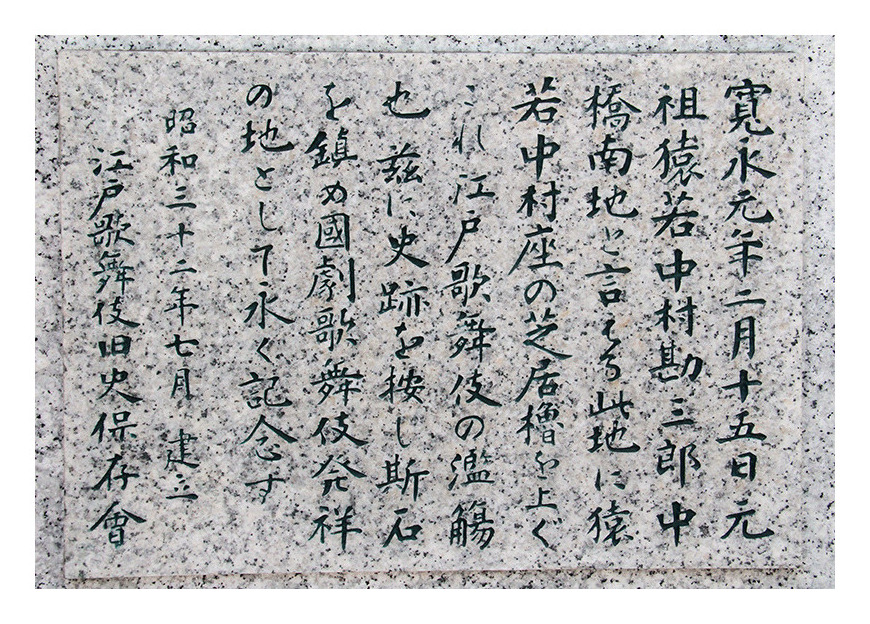 寛永元年二月十五日元
祖猿若中村勘三郎中
橋南地と言える此地に猿
若中村座の芝居櫓を上ぐ
これ江戸歌舞伎の濫觴
也茲に史跡を按し斯石
を鎮め國劇歌舞伎発祥
の地として永く記念す
昭和三十二年七月 建立
江戸歌舞伎旧史保存會